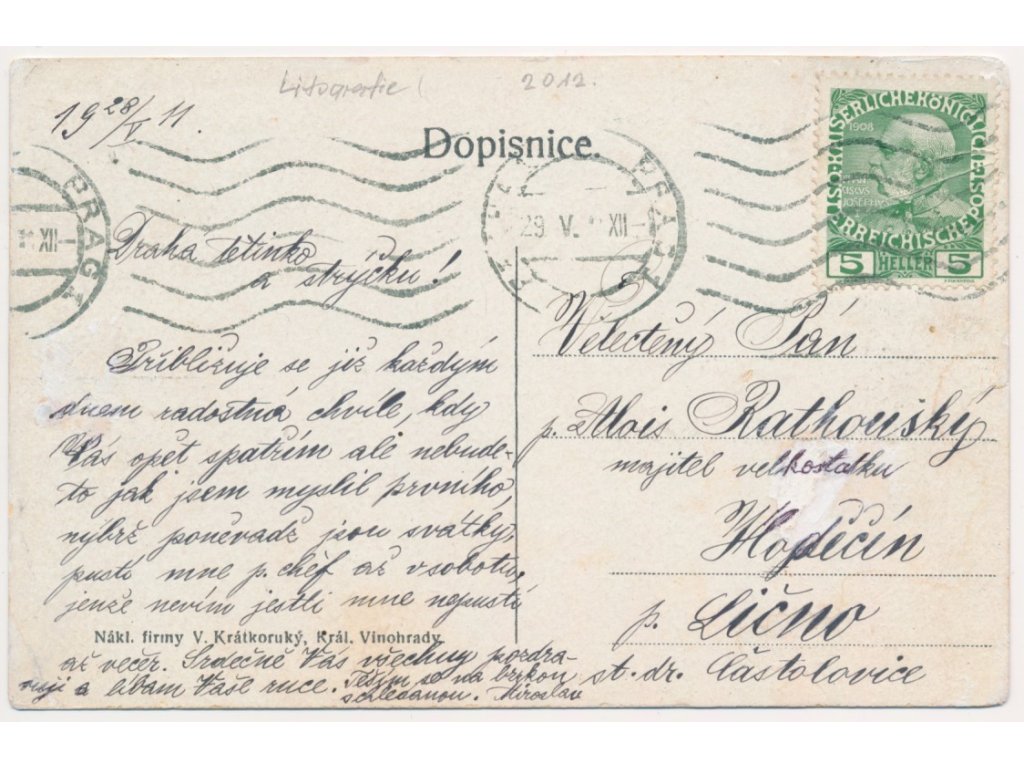 Litografie 2012.
19 28/V 11.
Dopisnice.
PRAGA
XII
PRAHA PRAGA
29 V. XII
1908
KAISERLICHEKÖNIGLICHE POST
ÖSTERREICHISCHE
5 HELLER 5
Drahá tetinko
a strýčku!
Přibližuje se již každým
dnem radostná chvíle, kdy
Vás opět spatřím ale nebude-
to jak jsem myslil prvního,
nýbrž poněvadž jsou svátky,
pustí mne p. chéf až v sobotu,
jenže nevím jestli mne nepustí
Nákl. firmy V. Krátkoruký, Král. Vinohrady.
až večer. Srdečně Vás všechny pozdra-
vuji a líbam Vaše ruce. Těším se na brzkou
schledanou. Miroslav
Velectěný Pán
p. Alois Rathouský
majitel velkostatku
Hoděčín
p. Lično
st. dr. Častolovice